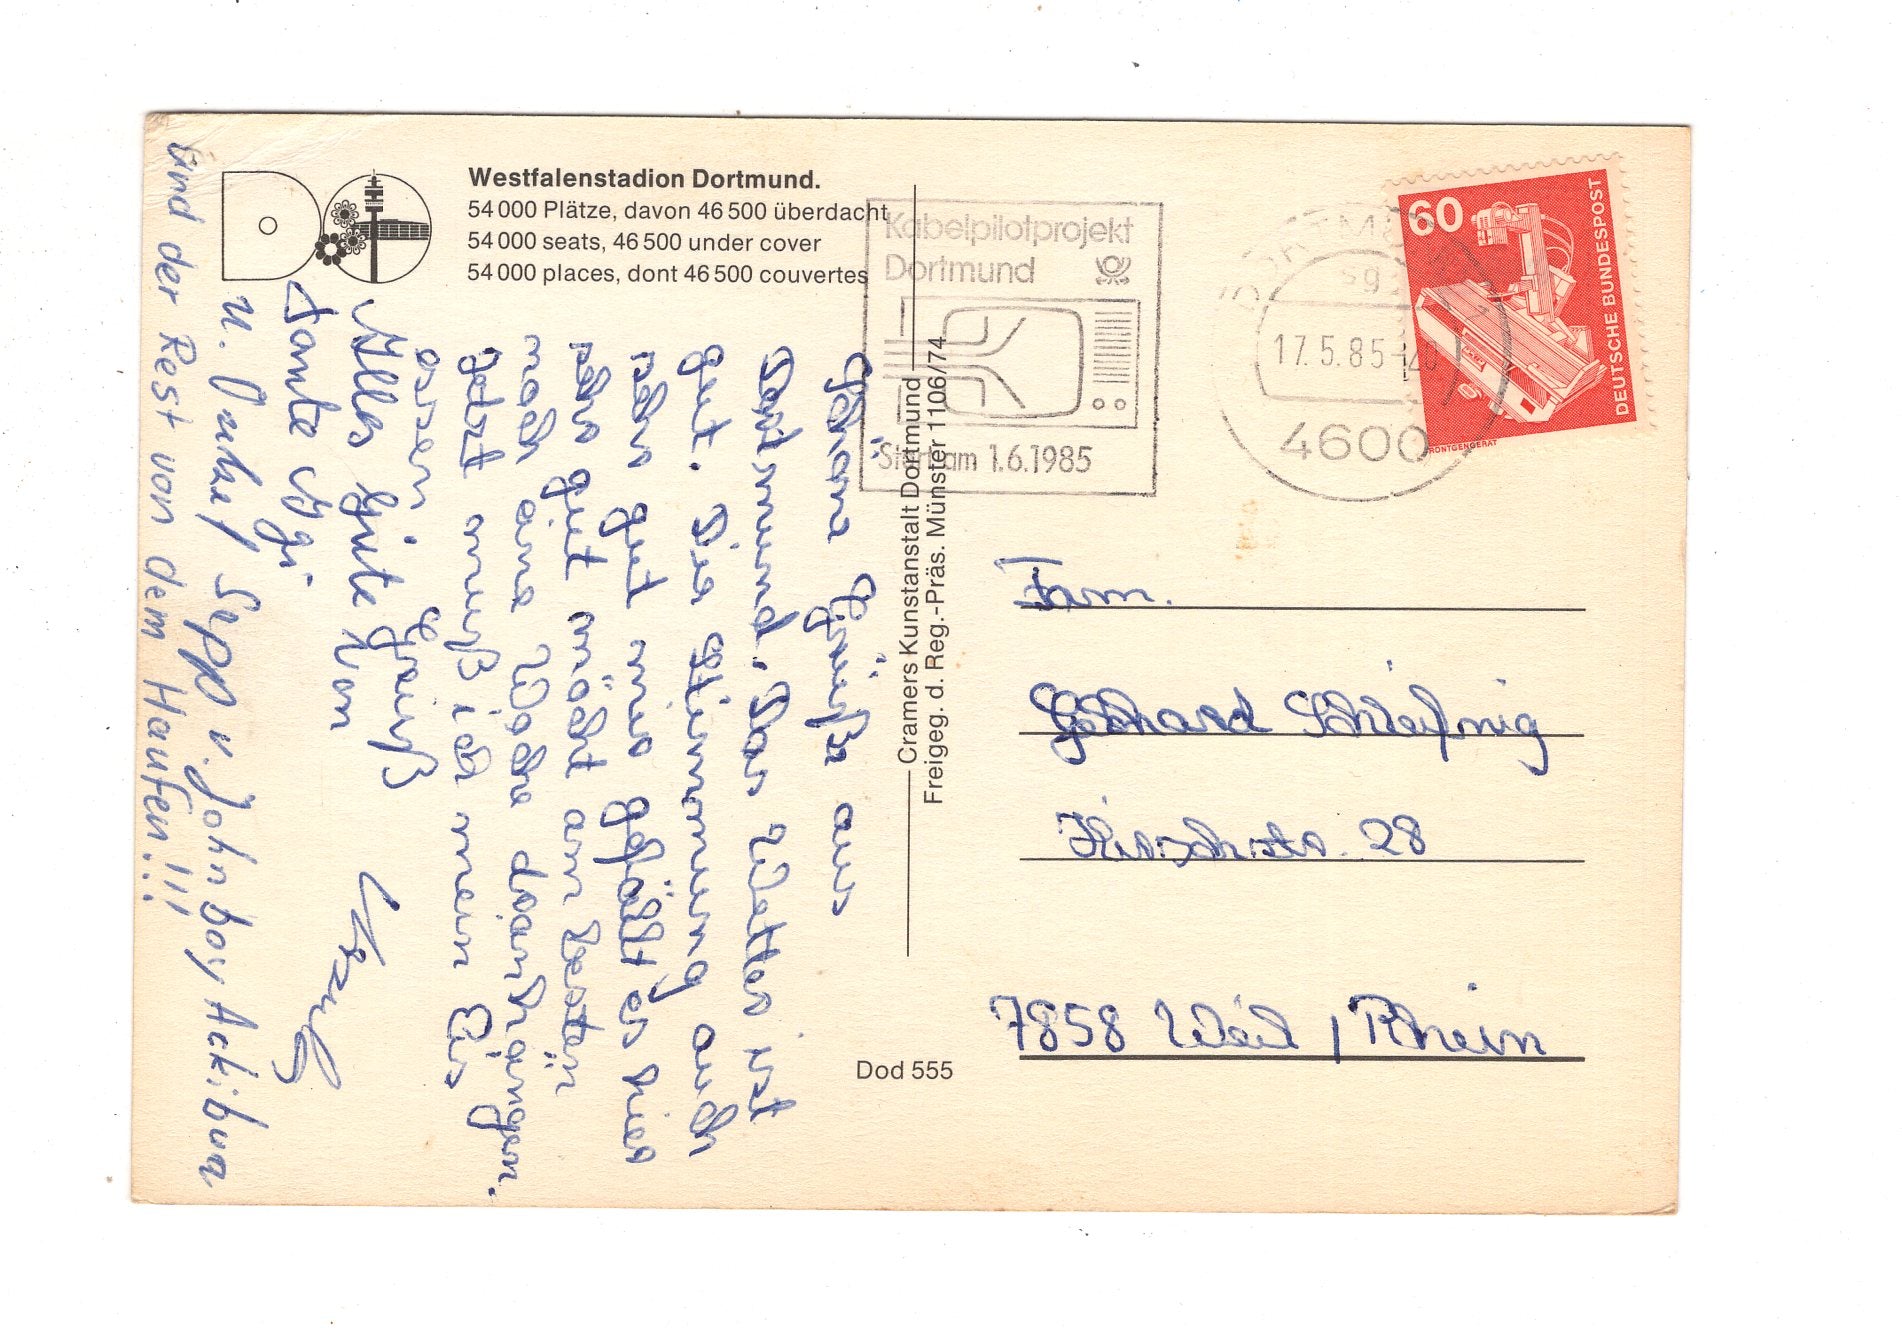 Westfalenstadion Dortmund.
54 000 Plätze, davon 46 500 überdacht
54 000 seats, 46 500 under cover
54 000 places, dont 46 500 couvertes
Kabelpilotprojekt
Dortmund
Start am 1.6.1985
DORTMUND
59
17.5.85-20
4600
60
DEUTSCHE BUNDESPOST
RÖNTGENGERÄT
Cramers Kunstanstalt Dortmund
Freigeg. d. Reg.-Präs. Münster 1106/74
Schöne Grüße aus
Dortmund. Das Wetter ist
gut. Die Stimmung auch
sehr gut mir gefällt es hier
sehr gut möcht am besten
noch eine Woche dranhängen.
Jetzt muß ich mein Eis
essen Gruß
Alles Gute von
Tante
u. Onkel Sepp u. John boy
und der Rest von dem Haufen!!!
Fam.
Gebhard
Hirschstr. 28
7858 Weil / Rhein
Dod 555